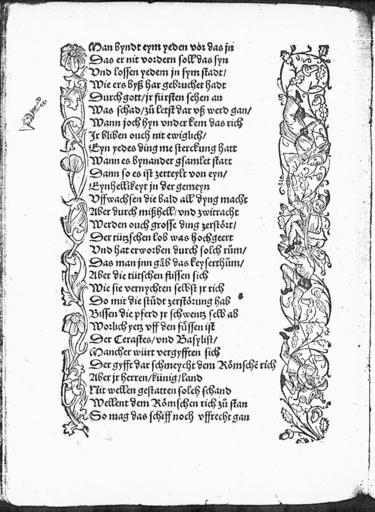 Man byndt eym yeden vor das jn
Das er nit vordern soll das syn
Vnd lossen yedem jn sym stadt/
Wie ers byß har gebruchet hadt
Durch gott/ jr fürsten sehen an
Was schad/ zů letst dar vß werd gan/
Wann joch hyn vnder kem das rich
Jr bliben ouch nit ewiglich/
Eyn yedes ding me sterckung hatt
Wann es bynander gsamlet statt
Dann so es ist zerteylt von eyn/
Eynhellikeyt jn der gemeyn
Vffwachsen die bald all dyng macht
Aber durch mißhell/ vnd zwitracht
Werden ouch grosse ding zerstört/
Der tütschen lob was hochgeert
Vnd hat erworben durch solch rům/
Das man jnn gäb das keyserthům/
Aber die tütschen flissen sich
Wie sie vernychten selbst jr rich
Do mit die stůdt zerstörung hab
Bissen die pferd jr schwentz selb ab
Worlich yetz vff den füssen ist
Der Cerastes/ vnd Basylist/
Mancher würt vergyfften sich
Der gyfft dar schmeycht dem Römschē rich
Aber jr herren/ künig/ land
Nit wellen gestatten solch schand
Wellent dem Römschen rich zů stan
So mag das schiff noch vffrecht gan